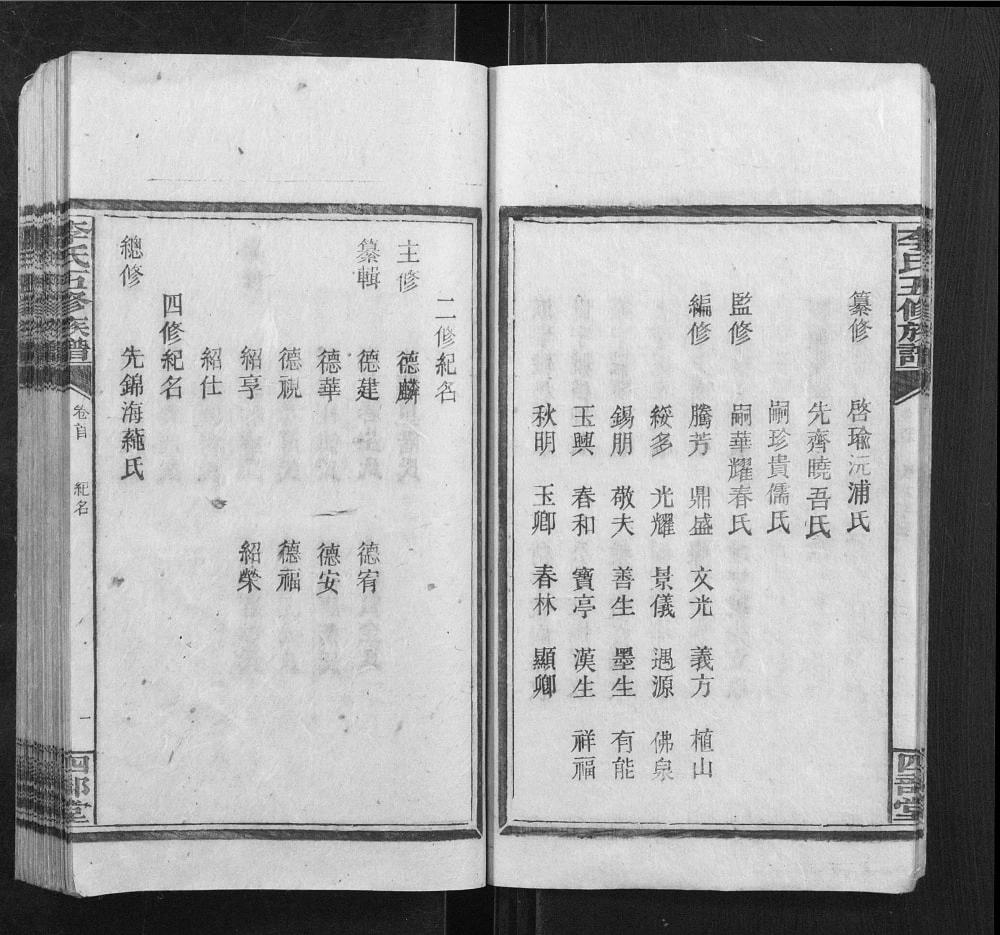 李氏五修族譜
纂修
啓瑜沅浦氏
先齊曉吾氏
嗣珍貴儒氏
監修
嗣華耀春氏
編修
騰芳 鼎盛 文光 義方 植山
綏多 光耀 景儀 遇源 佛泉
錫朋 敬夫 善生 墨生 有能
玉興 春和 寶亭 漢生 祥福
秋明 玉卿 春林 顯卿
四部堂
二修紀名
主修
德麟
纂輯
德建 德宥
德華 德安
德視 德福
紹享 紹榮
紹仕
四修紀名
總修
先錦海蒓氏
李氏五修族譜
卷首 紀名
一
四部堂